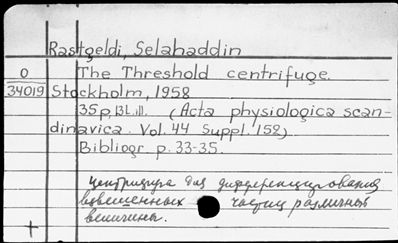 Rastgeldi, Selahaddin
O The Threshold centrifuge.
34019 Stockholm, 1958
35p, ill. (Acta physiologica scan-
dinavica. Vol. 44 Suppl. 152).
Bibliogr. p. 33-35.
Центрифуга для дифференцирования
взвешенных частиц различной
величины.
+